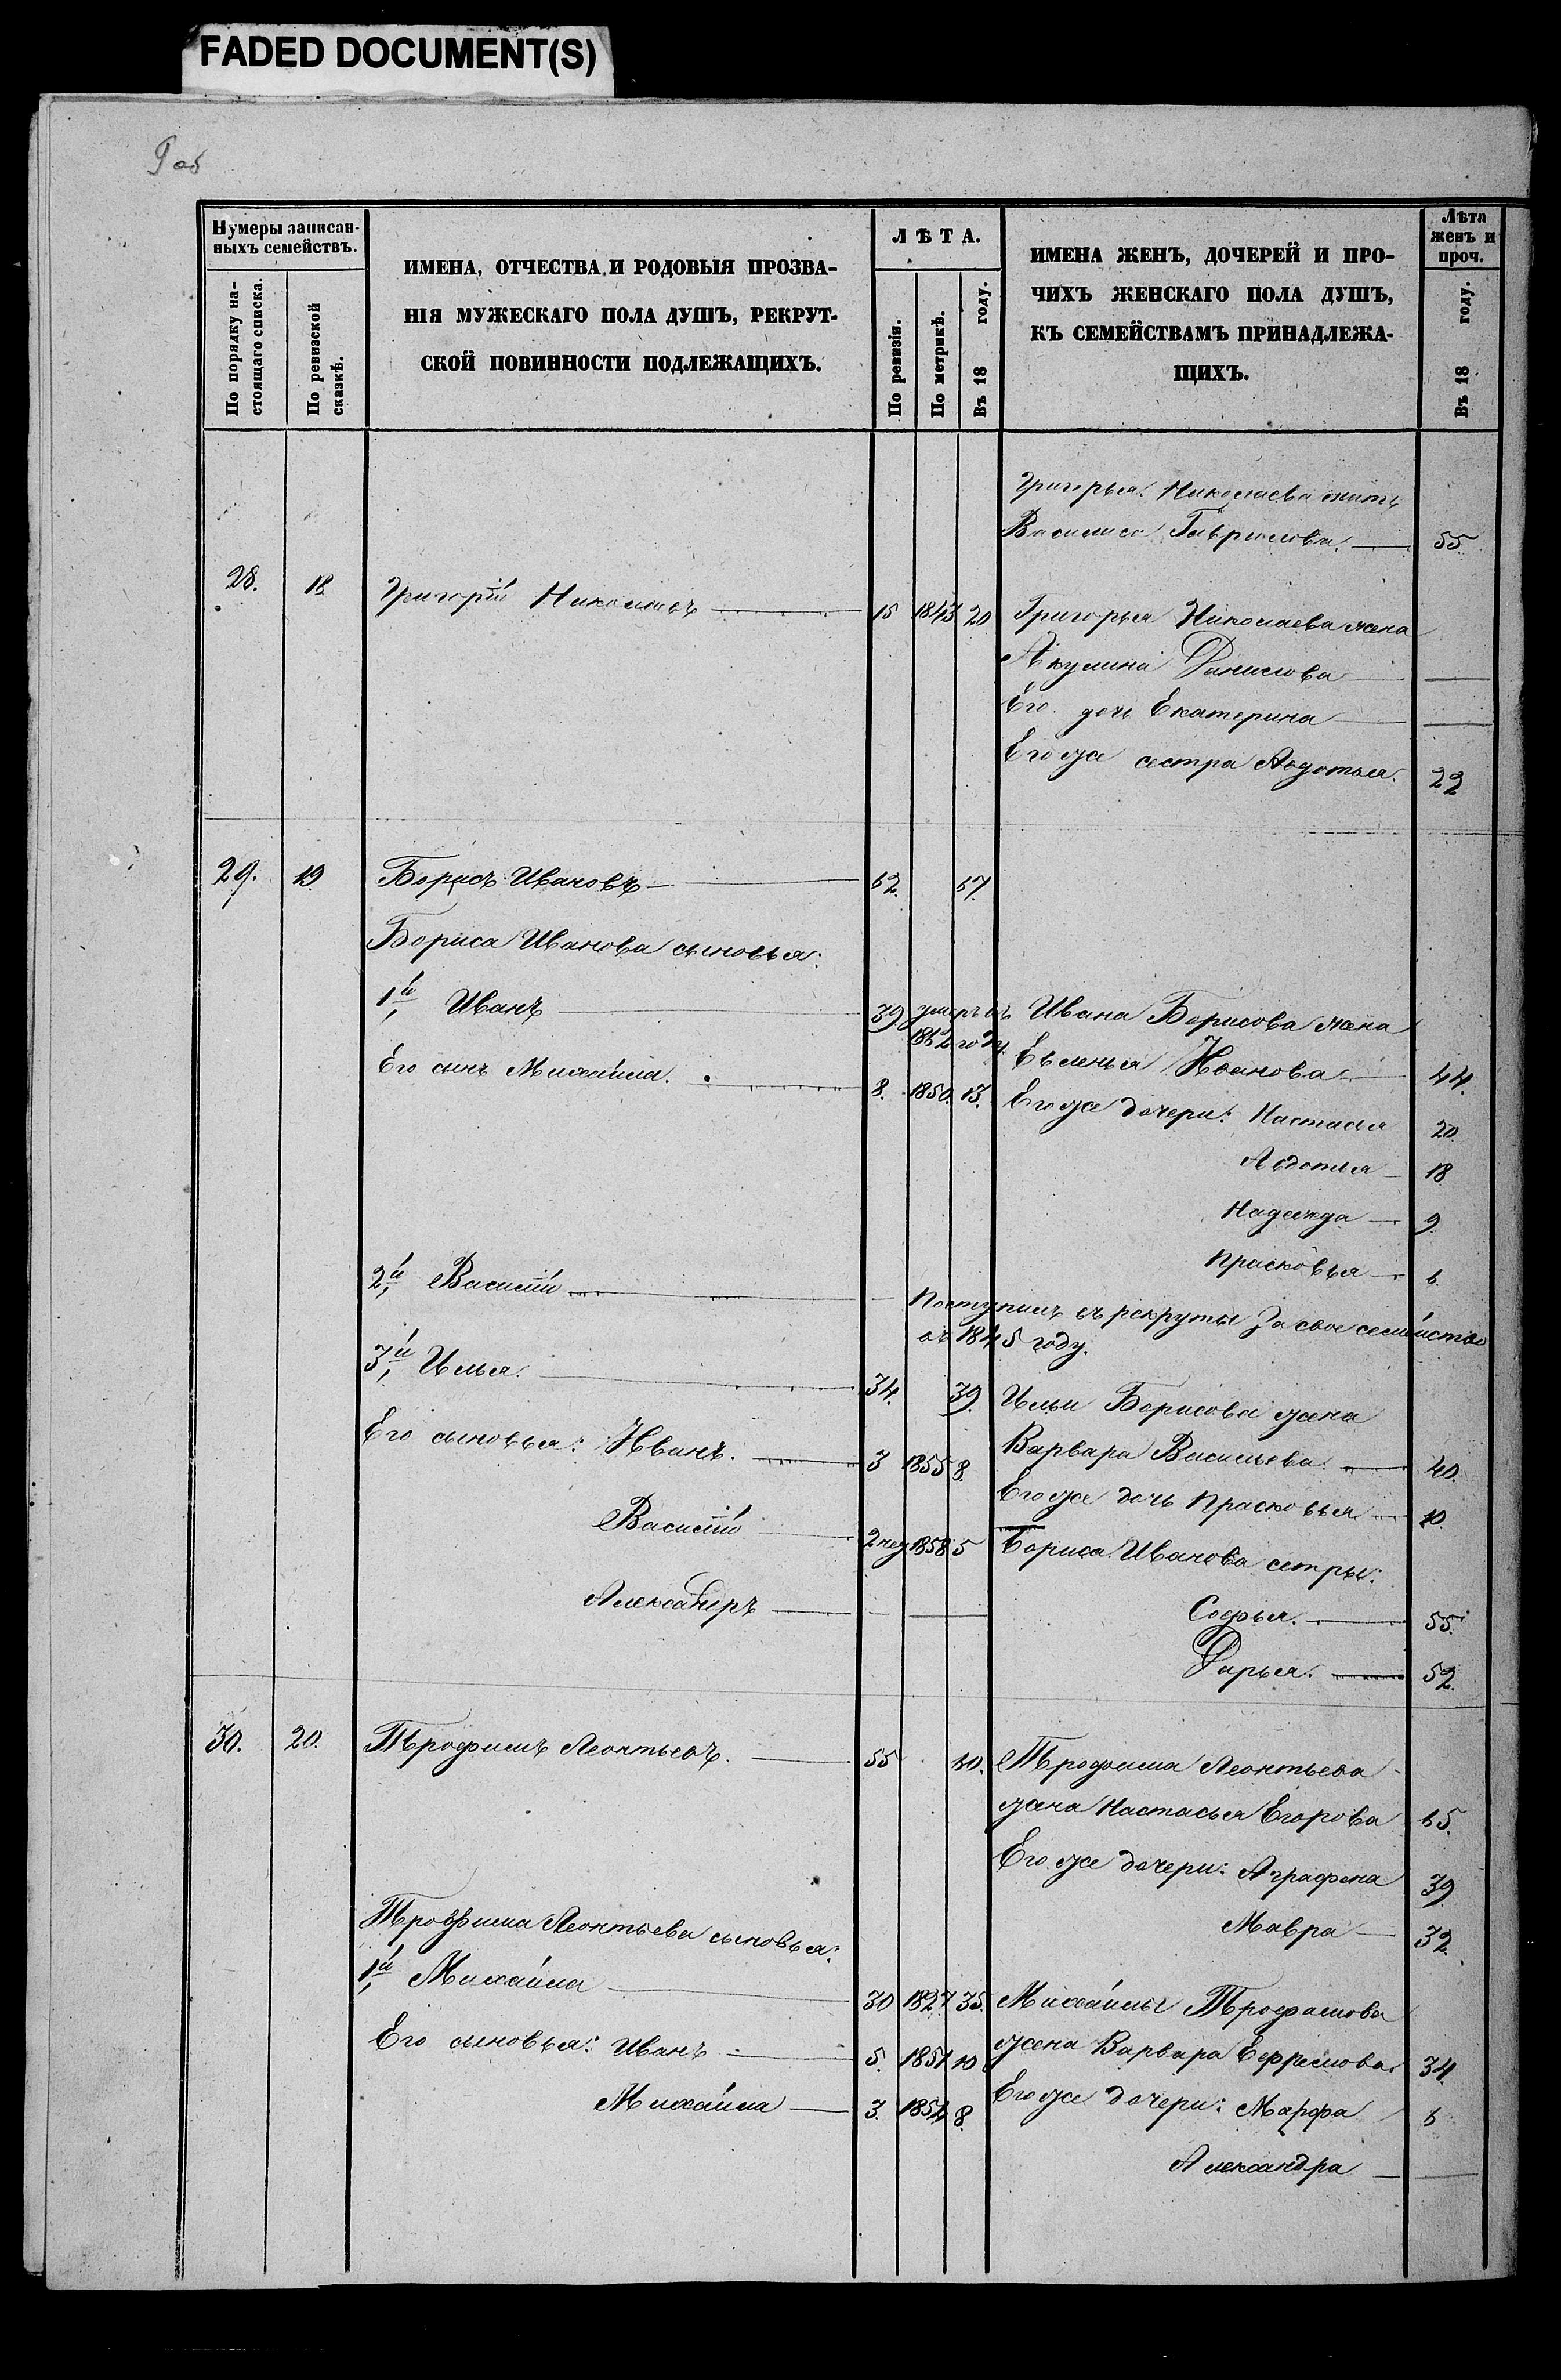 FADED DOCUMENT(S)
9 об
Нумеры записан-
ныхъ семействъ.
По порядку на-
стоящаго списка.
По ревизской
сказкѣ.
ИМЕНА, ОТЧЕСТВА И РОДОВЫЯ ПРОЗВА-
НІЯ МУЖЕСКАГО ПОЛА ДУШЪ, РЕКРУТ-
СКОЙ ПОВИННОСТИ ПОДЛЕЖАЩИХЪ.
ЛѢТА.
По ревизіи.
По метрикѣ.
Въ 18 году.
ИМЕНА ЖЕНЪ, ДОЧЕРЕЙ И ПРО-
ЧИХЪ ЖЕНСКАГО ПОЛА ДУШЪ,
КЪ СЕМЕЙСТВАМЪ ПРИНАДЛЕЖА-
ЩИХЪ.
Лѣта
женъ и
проч.
Въ 18 году.
Григорья Николаева мать
Василиса Гаврилова. 55
28. 18 Григорій Николаевъ 15 1843 20 Григорья Николаева жена
Акулина Данилова
Его дочь Екатерина
Его же сестра Авдотья. 22
29. 19 Борисъ Ивановъ 62. 67.
Бориса Иванова сыновья:
1й, Иванъ 39 умеръ въ Ивана Борисова жена
1862 году. Евленья Иванова 44.
Его сынъ Михайла. 8. 1850. 13. Его же дочери: Настасья 20
Авдотья 18
Надежда 9
Прасковья 6.
2й, Василій Поступилъ въ рекруты за свое семейство
въ 1845 году.
3й, Илья. 34. 39. Ильи Борисова жена
Варвара Васильева. 40.
Его сыновья: Иванъ. 3 1855 8. Его же дочь Прасковья 10.
Василій 2 нед 1858 5 Бориса Иванова сетры:
Александръ Софья. 55.
Дарья. 52.
30. 20. Трофимъ Леонтьевъ. 55 60. Трофима Леонтьева
жена Настасья Егорова 65.
Его же дочери: Аграфена 39
Мавра 32.
Трофима Леонтьева сыновья:
1й, Михайла 30 1827 35. Михайлы Трофимова
жена Варвара Ефремова 34.
Его сыновья: Иванъ 5. 1851 10 Его же дочери: Марфа 6
Михайла 3. 1854 8. Александра